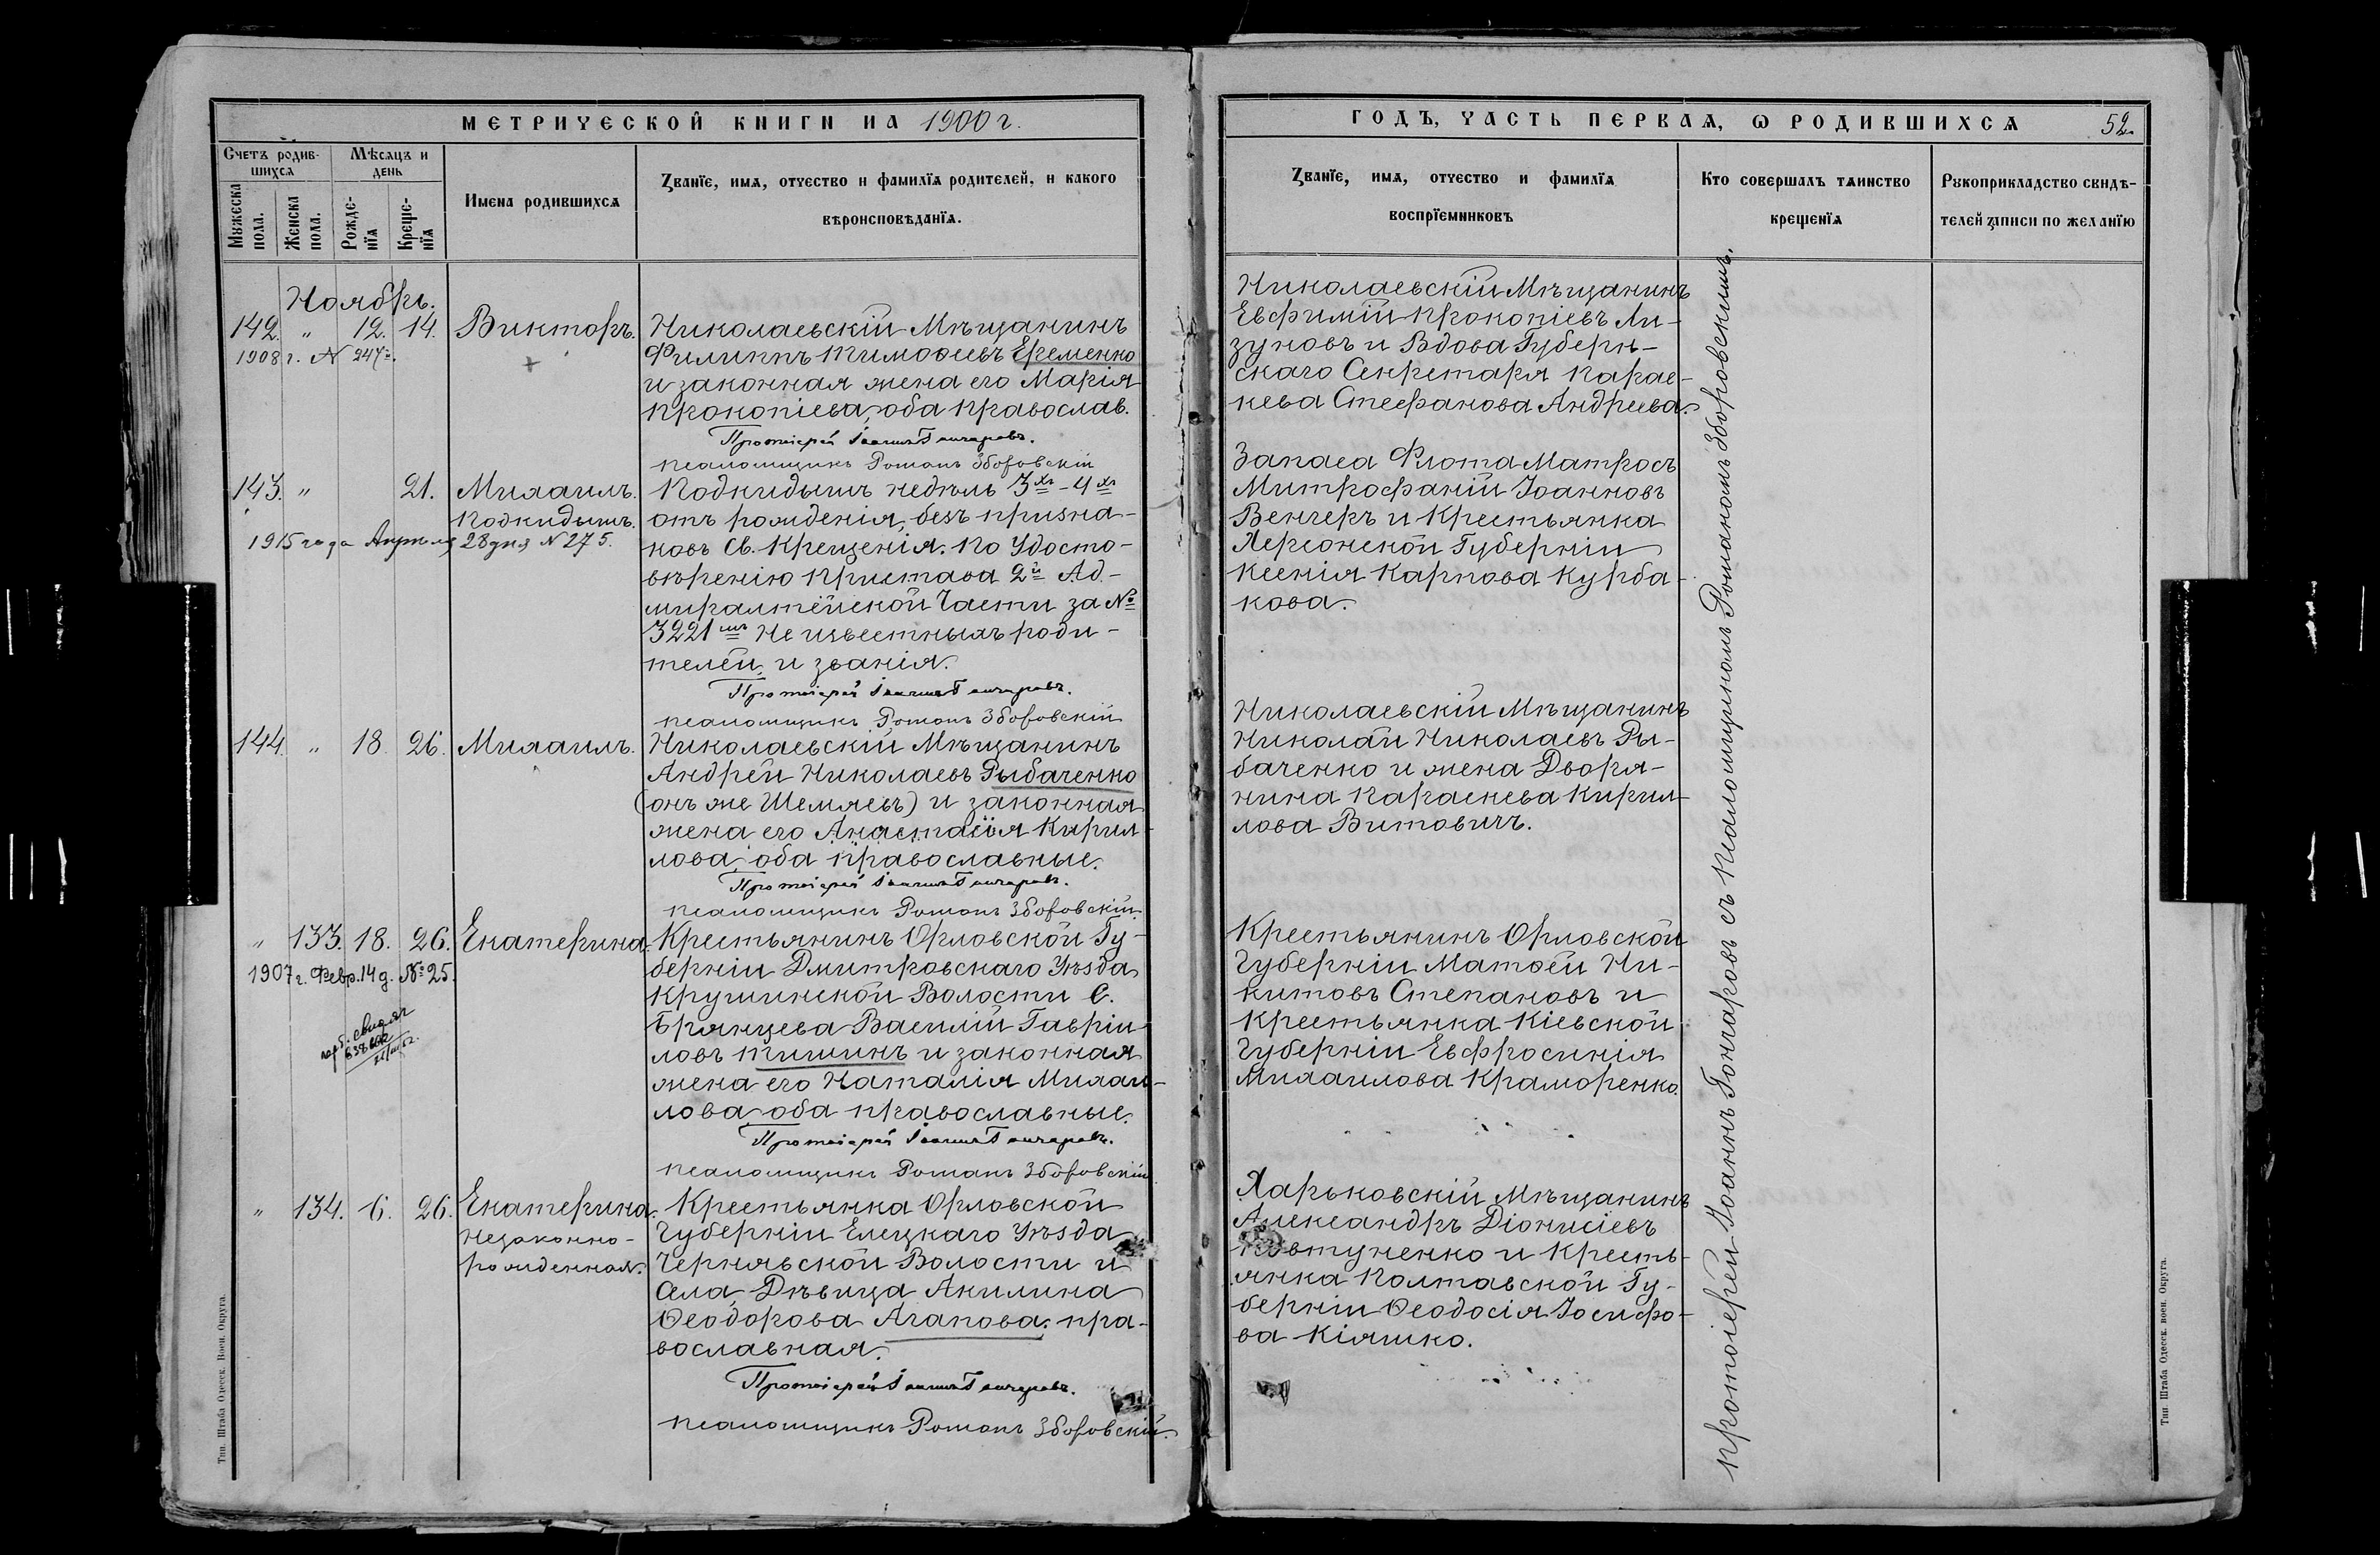 МЕТРИЧЕСКОЙ КНИГИ НА 1900 г.
Счетъ родив-
шихся
Мѣсяцъ и
день
Мужеска
пола.
Женска
пола.
Рожде-
нїя
Креще-
нїя
Имена родившихся
Званїе, имя, отчество и фамилїя родителей, и какого
вѣроисповѣданїя.
Ноябрь.
142. " 12. 14. Викторъ.
1908 г. N 247
Николаевскій Мѣщанинъ
Филиппъ Тимофеевъ Еременко
и законная жена его Марія
Прокопіева, оба православ.
Протоіерей Іоаннъ Гончаровъ.
Псаломщикъ Романъ Зборовскій
143. " 21. Михаилъ.
Подкидышъ.
1915 года Апреля 28 дня N 275.
Подкидышъ недѣль 3хъ-4хъ
отъ рожденія, безъ призна-
ковъ Св. Крещенія. По Удосто-
вѣренію Пристава 2й Ад-
миралтейской Части за №
3221мъ Не известныхъ роди-
телей и званія.
Протоіерей Іоаннъ Гончаровъ.
Псаломщикъ Романъ Зборовскій
144. " 18. 26. Михаилъ.
Николаевскій Мѣщанинъ
Андрей Николаевъ Рыбаченко
(онъ же Шемяевъ) и законная
жена его Анастасія Кирил-
лова, оба православные.
Протоіерей Іоаннъ Гончаровъ.
Псаломщикъ Романъ Зборовскій.
" 133. 18. 26. Екатерина.
1907 г. Февр. 14 д. № 25.
Крестьянинъ Орловской Гу-
берніи Дмитровскаго Уѣзда
Волости С.
Брянцева Василій Гаврii-
ловъ Тишинъ и законная
жена его Наталія Михаи-
лова оба православные.
Протоіерей Іоаннъ Гончаровъ.
Псаломщикъ Романъ Зборовскій
" 134. 6. 26. Екатерина.
Незаконно-
рожденная.
Крестьянка Орловской
Губерніи Елецкаго Уѣзда
Чернявской Волости и
Села, Дѣвица Акилина
Ѳеодорова Агапова. пра-
вославная.
Протоіерей Іоаннъ Гончаровъ.
Псаломщикъ Романъ Зборовскій.
Тип. Штаба Одесск. Воен. Округа.
ГОДЪ, ЧАСТЬ ПЕРВАЯ, Ѡ РОДИВШИХСЯ 52
Званїе, имя, отчество и фамилїя
воспрїемниковъ
Кто совершалъ таинство
крещенїя
Рукоприкладство свидѣ-
телей записи по желанїю
Николаевскій Мѣщанинъ
Евфимій Прокопіевъ Ли-
зуновъ и Вдова Губерн-
скаго Секретаря Парас-
кева Стефанова Андреева.
Запаса Флота Матросъ
Митрофаній Іоанновъ
Венгеръ и Крестьянка
Херсонской Губерніи
Ксенія Карпова Курба-
кова.
Николаевскій Мѣщанинъ
Николай Николаевъ Ры-
баченко и жена Дворя-
нина Параскева Кирил-
лова Витовичъ.
Крестьянинъ Орловской
Губерніи Матѳей Ни-
китовъ Степановъ и
Крестьянка Кіевской
Губерніи Евфросинія
Михаилова Краморенко.
Харьковскій Мѣщанинъ
Александръ Діонисіевъ
Ковтуненко и Кресть-
янка Полтавской Гу-
берніи Ѳеодосія Іосифо-
ва Кіяшко.
Протоіерей Іоаннъ Гончаровъ съ Псаломщикомъ Романомъ Зборовскимъ.
Тип. Штаба Одесск. воен. Округа.